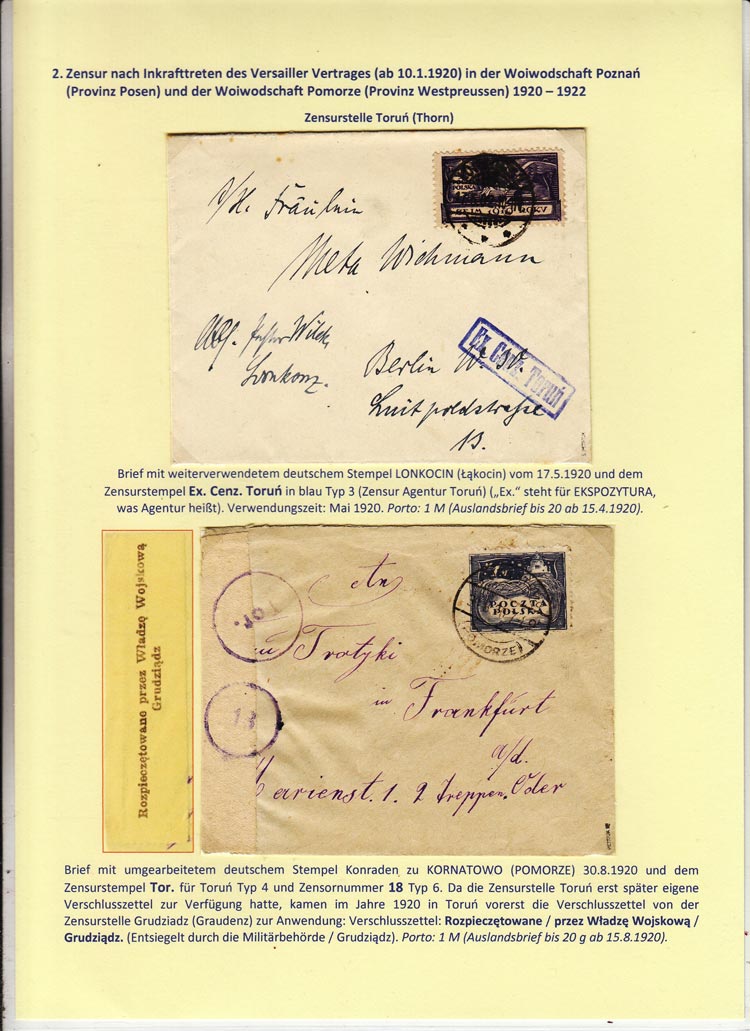 2. Zensur nach Inkrafttreten des Versailler Vertrages (ab 10.1.1920) in der Woiwodschaft Poznań
(Provinz Posen) und der Woiwodschaft Pomorze (Provinz Westpreussen) 1920 – 1922
Zensurstelle Toruń (Thorn)
POLSKA
ROKU
Fräulein
Meta Wichmann
Ex. Cenz. Toruń
Berlin W.
Lonkocz.
Luitpoldstraße
13.
Brief mit weiterverwendetem deutschem Stempel LONKOCIN (Łąkocin) vom 17.5.1920 und dem
Zensurstempel Ex. Cenz. Toruń in blau Typ 3 (Zensur Agentur Toruń) („Ex." steht für EKSPOZYTURA,
was Agentur heißt). Verwendungszeit: Mai 1920. Porto: 1 M (Auslandsbrief bis 20 ab 15.4.1920).
Rozpieczętowane przez Władzę Wojskową
Grudziądz
Tor.
18
POCZTA
POLSKA
POMORZE
An
Trotyki
in
Frankfurt
a/d.
Oder
Marienst. 1. 2 treppen.
Brief mit umgearbeitetem deutschem Stempel Konraden zu KORNATOWO (POMORZE) 30.8.1920 und dem
Zensurstempel Tor. für Toruń Typ 4 und Zensornummer 18 Typ 6. Da die Zensurstelle Toruń erst später eigene
Verschlusszettel zur Verfügung hatte, kamen im Jahre 1920 in Toruń vorerst die Verschlusszettel von der
Zensurstelle Grudziadz (Graudenz) zur Anwendung: Verschlusszettel: Rozpieczętowane / przez Władzę Wojskową /
Grudziądz. (Entsiegelt durch die Militärbehörde / Grudziądz). Porto: 1 M (Auslandsbrief bis 20 g ab 15.8.1920).